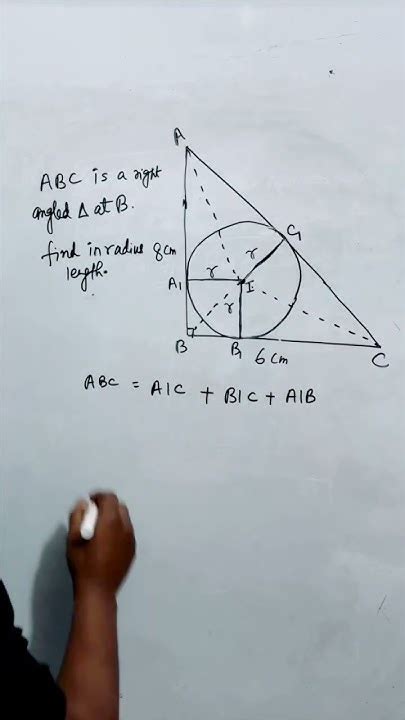 A
ABC is a right
angled Δ at B.
find inradius
length.
8cm
C1
r
r
A1
I
r
B
B1
6 cm
C
ABC = AIC + BIC + AIB